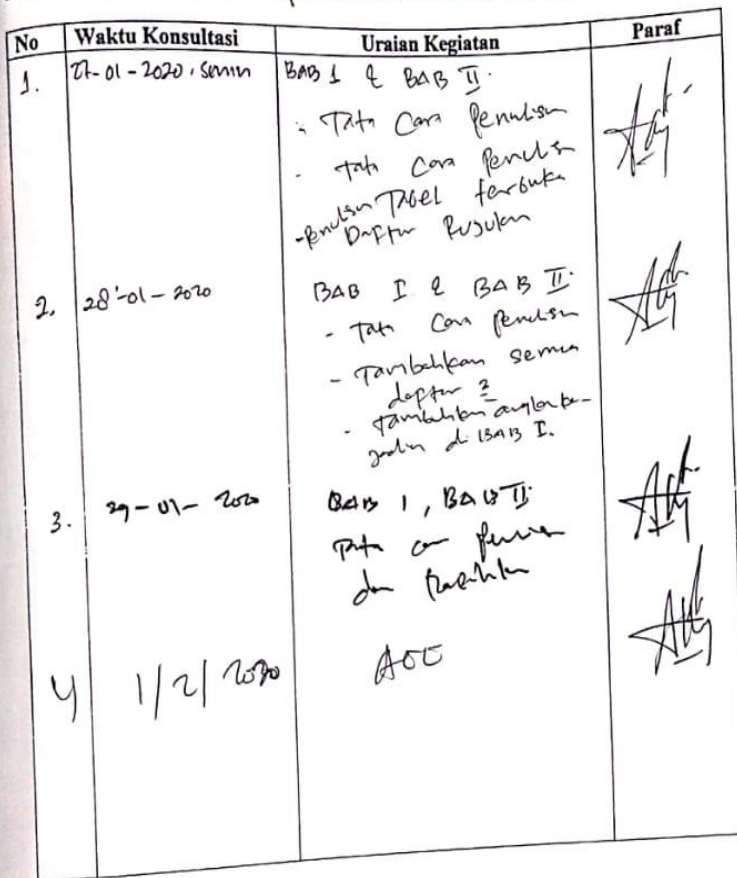 No Waktu Konsultasi Uraian Kegiatan Paraf
1. 27-01-2020, Senin BAB 1 & BAB II.
- Tata Cara Penulisan
- Tata Cara Penulisan
- Penulisan Tabel terbuka
Daftar Rujukan
2. 28-01-2020 BAB I & BAB II.
- Tata Cara Penulisan
- Tambahkan semua
daftar 2
- Tambahkan angka ke-
jadian di BAB I.
3. 29-01-2020 BAB 1, BAB II
Tata cara
dan
4 1/2/2020 ACC